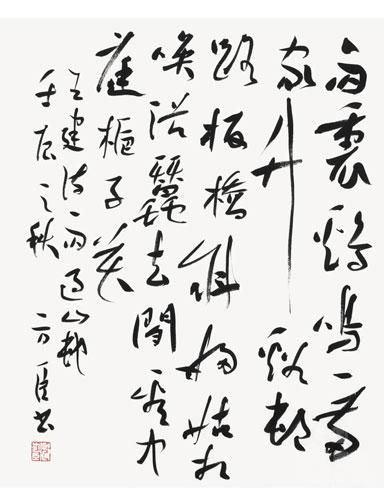 雨裏鷄鳴一兩
家竹谿邨
路板橋斜婦姑相
喚浴蠶去閒看中
庭梔子花
王建詩雨過山邨
壬辰之秋 書